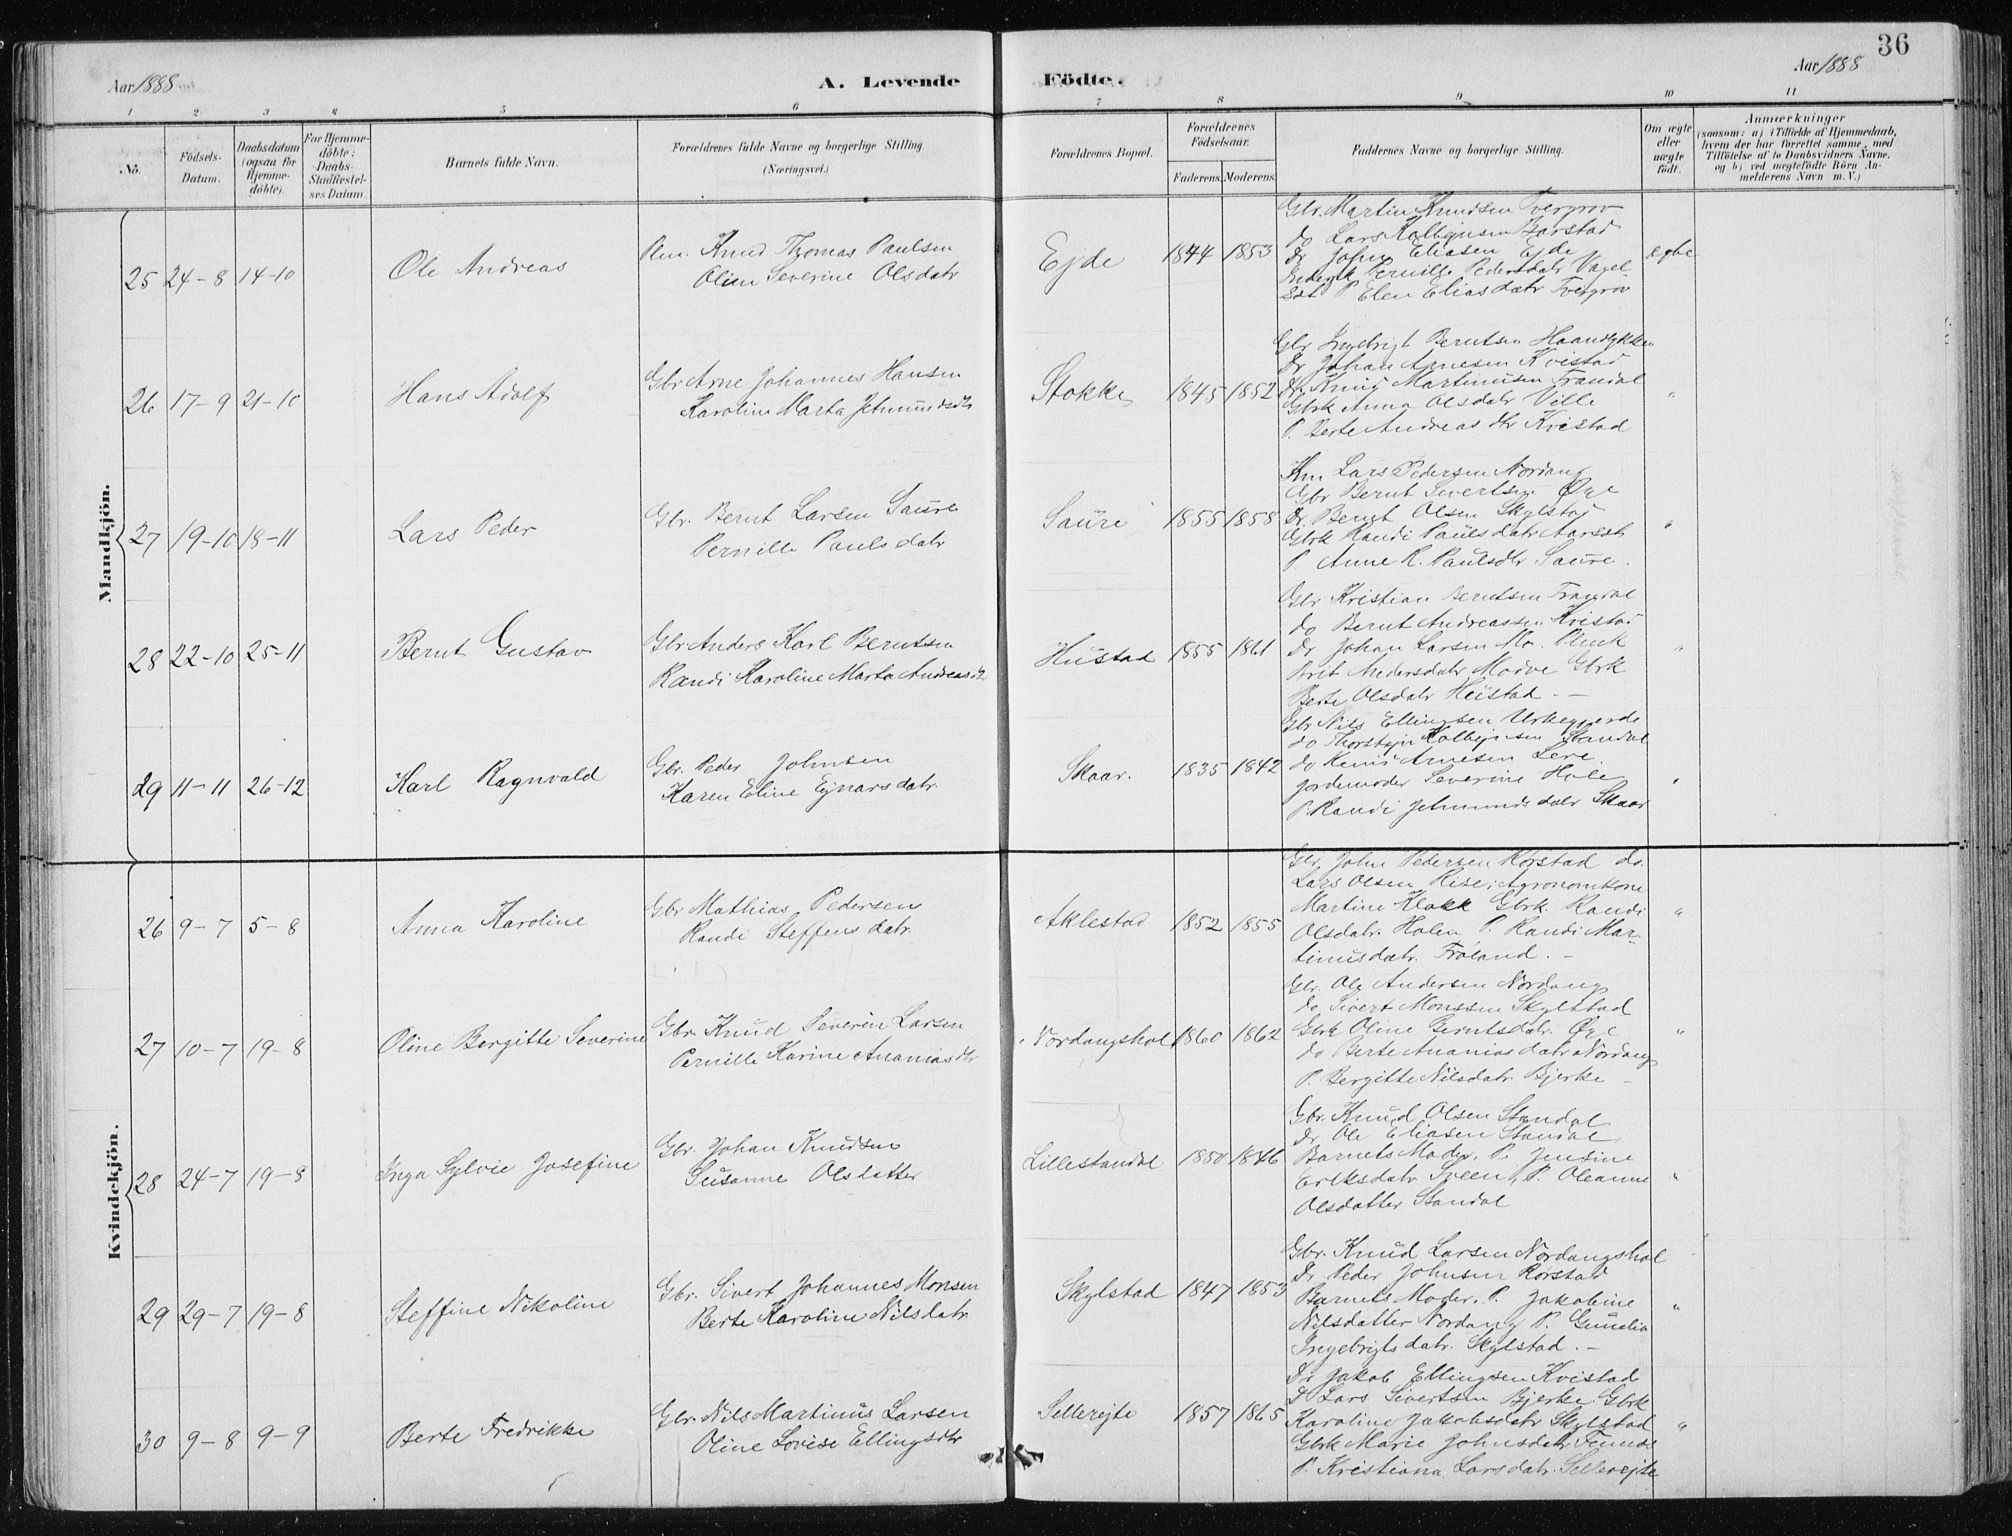 36
Aar 1888 A. Levende Födte. Aar 1888
1 2 3 4 5 6 7 8 9 10 11
No. Födsels-Datum. Daabsdatum (ogsaa for Hjemme-döbte). For Hjemme-döbte: Daabs-Stadfæstel-ses Datum. Barnets fulde Navn. Forældrenes fulde Navne og borgerlige Stilling. (Næringsvei.) Forældrenes Bopæl. Forældrenes Födselsaar. Faderens. Moderens. Faddernes Navne og borgerlige Stilling. Om ægte eller uægte födt. Anmærkninger (saasom: a) i Tilfælde af Hjemmedaab, hvem der har forrettet samme, med Tilföielse af to Daabsvidners Navne, og b) ved uægtefödte Börn Anmelderens Navn m. V.)
Mandkjön.
25 24-8 14-10 Ole Andreas
Knud Thomas Paulsen
Oline Severine Olsdatr
Ejde 1844 1853
Gbr. Martin Knudsen Tvergrov
do Lars Kolbejnsen Barstad
Dr John Eliasen Ejde
Pernille Pedersdatr Vagel
P Elen Eliasdatr Tvergrov
egte
26 17-9 21-10 Hans Adolf
Gbr Arne Johannes Hansen
Karoline Marta Jetmundsdtr
Stokke 1845 1852
Gbr Ingebrigt Berntsen Haandlykken
Dr Johan Arnesen Kvistad
Dr Knud Martinusen Frandal
Gbrk Anna Olsdatr Ville
P. Berte Andreasdtr Kvistad
"
27 19-10 18-11 Lars Peder
Gbr. Bernt Larsen Saure
Pernille Paulsdatr
Saure 1855 1858
Lars Pedersen Nordang
Gbr Bernt Sivertsen Øye
Dr. Bengt Olsen Skylstad
Gbrk Randi Paulsdatr Aarseth
P. Anne R. Paulsdtr Saure.
"
28 22-10 25-11 Bernt Gustav
Gbr Anders Karl Berntsen
Randi Karoline Marta Andreasdtr
Hustad 1855 1861
Gbr Kristian Berntsen Frandal
do Bernt Andreassen Kvistad
Dr Johan Larsen Mo. Plmk
Brit Andersdatr Modve Gbrk
Berte Olsdatr Hustad. —
"
29 11-11 26-12 Karl Ragnvald
Gbr. Peder Johnsen
Karen Eline Ejnarsdatr.
Skaar. 1835 1842
Gbr Nils Ellingsen Urkegjerde
do Thorstejn Kolbejnsen Standal
do Knud Arnesen Leve.
Jordemoder Severine Hole
P. Randi Jetmundsdatr Skaar
"
Kvindekjön.
26 9-7 5-8 Anna Karoline
Gbr Mathias Pedersen
Randi Steffensdatr.
Aklestad 1852 1855
Gbr. John Pedersen Rørstad do.
Lars Olsen Rise; Agronomkone
Martine Klokk Gbrk. Randi
Olsdatr. Holen P. Randi Mar-
tinusdatr. Frøland. —
"
27 10-7 19-8 Oline Bergitte Severine
Gbr. Knud Severin Larsen
Pernille Karine Ananiasdtr
Nordangshol 1860 1862
Gbr. Ole Andersen Nordang
do Sivert Monssen Skylstad
Gbrk Oline Berntsdatr. Øye
do Berte Ananiasdatr Nordang
P. Bergitte Nilsdatr. Bjerke —
"
28 24-7 19-8 Inga Sylvie Josefine
Gbr. Johan Knudsen
Susanne Olsdatter
Lillestandal 1850 1846
Gbr. Knud Olsen Standal
Dr Ole Eliasen Standal
Barnets Moder. P. Jensine
Eriksdatr Sveen, P. Oleanne
Olsdatter Standal
"
29 29-7 19-8 Steffine Nikoline
Gbr. Sivert Johannes Monsen
Berte Karoline Nilsdatr.
Skylstad 1847 1853
Gbr. Knud Larsen Nordangshol
Dr Peder Johnsen Rørstad
Barnets Moder. P. Jakobine
Nilsdatter Nordang P. Gunelia
Ingebrigtsdatr. Skylstad. —
"
30 9-8 9-9 Berte Fredrikke
Gbr. Nils Martinus Larsen
Oline Lovise Ellingsdtr
Sellerejte 1857 1865
Dr Jakob Ellingsen Kvistad
D Lars Sivertsen Bjerke Gbrk
Karoline Jakobsdatr Skylstad
Gbrk Marie Johnsdatr
P. Kristiana Larsdatr. Sellerejte
"